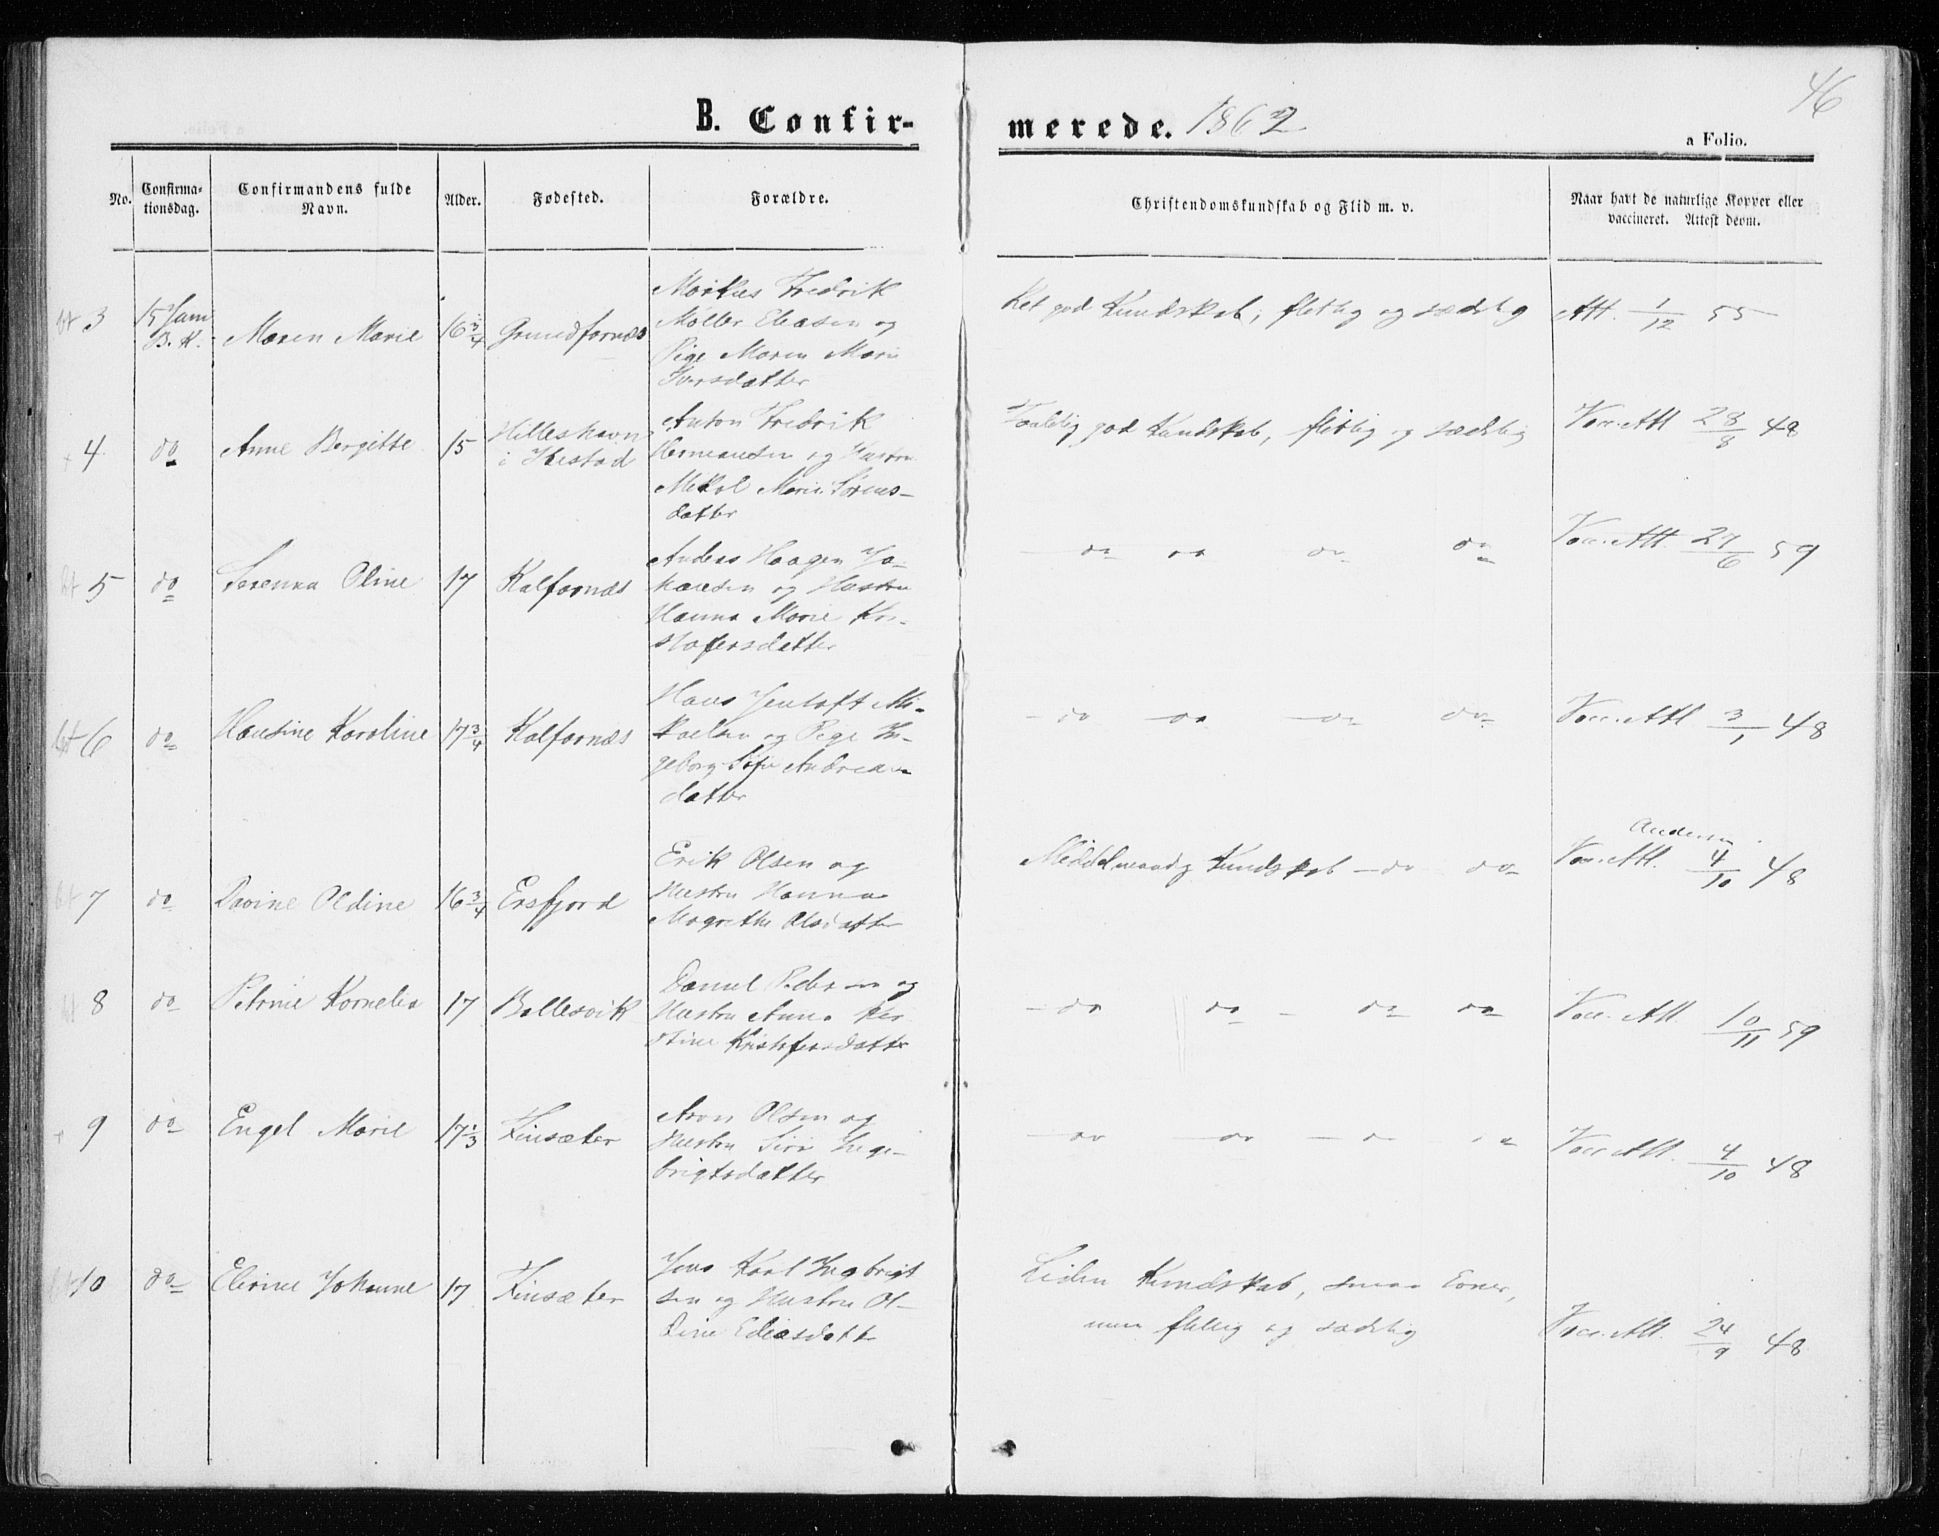 46
B. Confir-
merede. 1862
a Folio.
No.
Confirma-
tionsdag.
Confirmandens fulde
Navn.
Alder.
Fødested.
Forældre.
Christendomskundskab og Flid m. v.
Naar havt de naturlige Kopper eller
vaccineret. Attest derom.
3 15 Juni B. K. Maren Marie 16 3/4 Grundfarnæs
Fredrik
Møller Eliasen og
Pige Maren Marie
Iversdatter
Ret god Kundskab, flittig og sædelig
Att. 1/12 55
4 do Anne Bergitte 15 Hilleshavn
i Ibestad
Anton Fredrik
Hermansen og Hustru
Marie Sørens-
datter
Taalelig god Kundskab, flittig og sædelig
Vacc. Att 28/8 48
5 do Serenna Oline 17 Kalfarnæs
Anders Haagen Jo-
hansen og Hustru
Hanna Marie Kri-
stofersdatter
do do do do
Vacc. Att. 27/6 59
6 do Hansine Karoline 17 3/4 Kalfarnæs
Hans Jentoft Mi-
kaelsen og Pige In-
geborg Sofie Andreas
datter
do do do do
Vacc. Att 3/1 48
7 do Davine Oldine 16 3/4 Ersfjord
Erik Olsen og
Hustru Hanna
Magrethe Olsdatter
Middelmaadig Kundskab do do
Andersen
Vacc. Att. 4/10 48
8 do Petrine Kornelia 17 Ballesvik
Daniel Pedersen og
Hustru Anna Ker-
stine Kristofersdatter
do do do do
Vacc. Att. 10/11 59
9 do Engel Marie 17 1/3 Finsæter
Aron Olsen og
Hustru Siri Inge-
brigtsdatter
do do do do
Vacc Att. 4/10 48
10 do Elerine Johanne 17 Finsæter
Jens Karl Ingbrigt
sen og Hustru Ol-
dine Eliasdatter
Liden Kundskab, smaa Evner,
men flittig og sædelig
Vacc. Att. 24/9 48